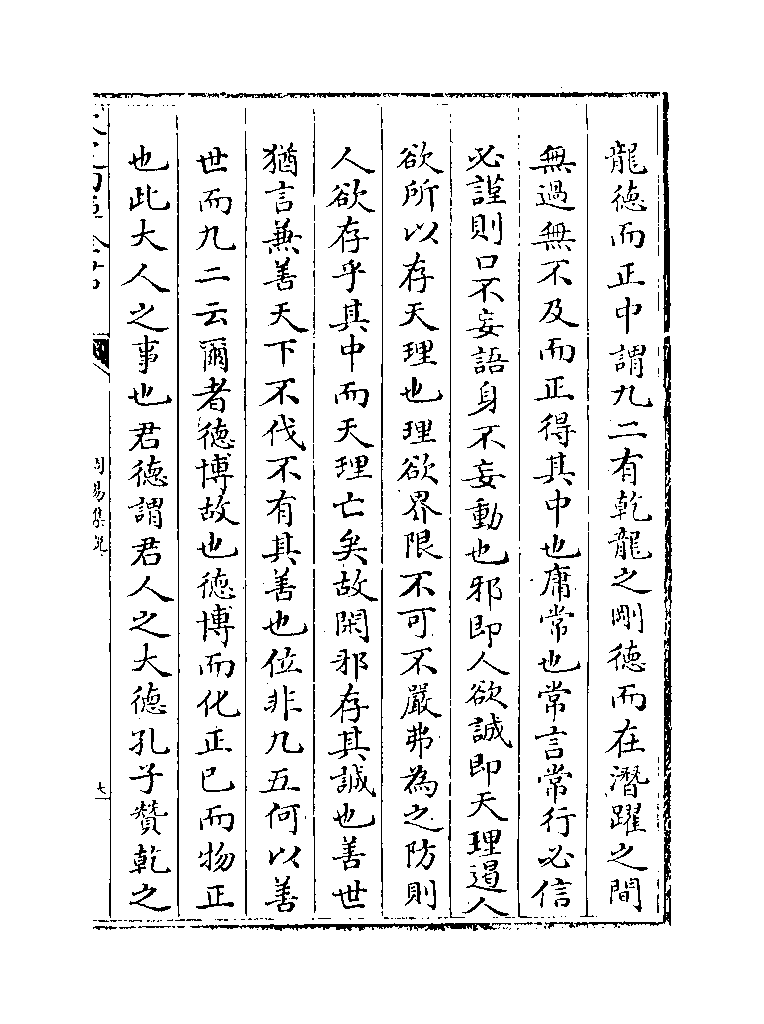 龍德而正中謂九二有乾龍之剛德而在潛躍之間
無過無不及而正得其中也庸常也常言常行必信
必謹則口不妄語身不妄動也邪即人欲誠即天理遏人
欲所以存天理也理欲界限不可不嚴弗為之防則
人欲存乎其中而天理亡矣故閑邪存其誠也善世
猶言兼善天下不伐不有其善也位非九五何以善
世而九二云爾者德博故也德博而化正已而物正
也此大人之事也君德謂君人之大德孔子贊乾之
周易集說